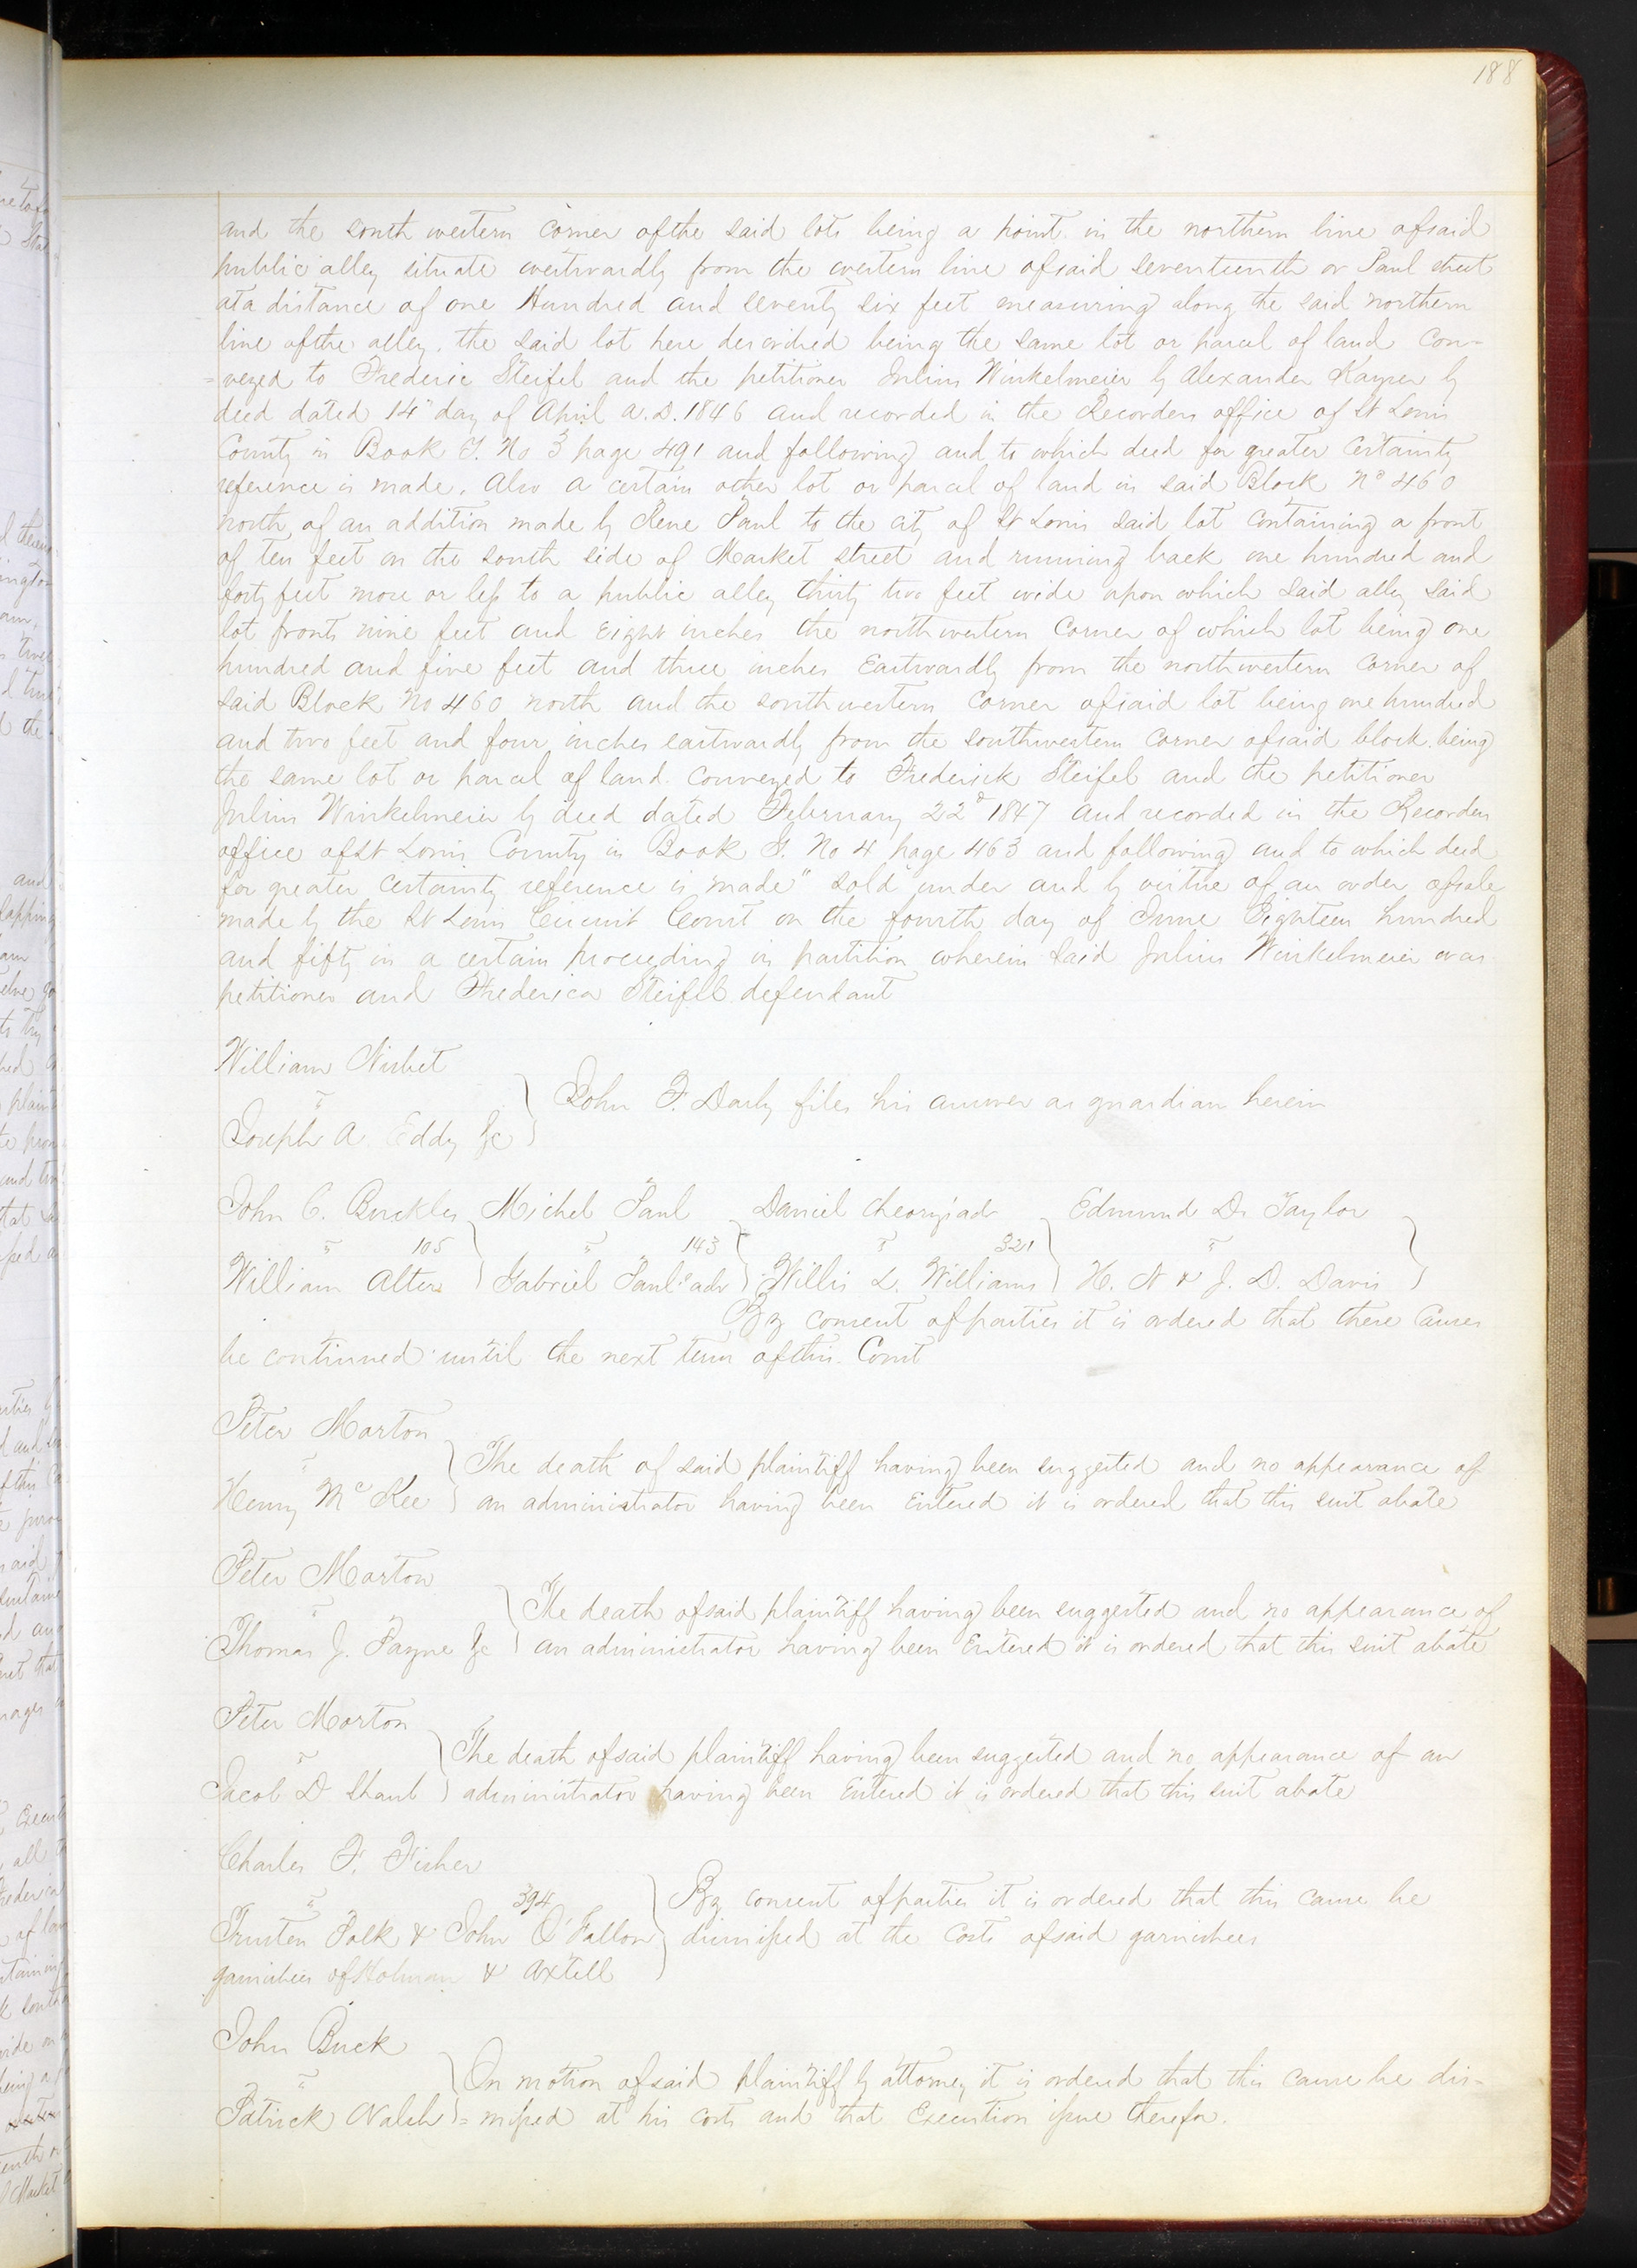 188
and the south western corner of the said lots being a point in the northern line of said
public alley situate westwardly from the western line of said seventeenth or Paul street
at a distance of one Hundred and seventy six feet measuring along the said northern
line of the alley. the said lot here described being the same lot or parcel of land Con-
=veyed to Frederic Steifel and the petitioner Julius Winkelmeier by Alexander Kayser by
deed dated 14" day of April A.D. 1846 and recorded in the Recorders office of St Louis
County in Book T. No 3 page 491 and following and to which deed for greater certainty
reference is made. Also a certain other lot or parcel of land in said Block No 460
north of an addition made by Rene Paul to the city of St Louis said lot containing a front
of ten feet on the south side of Market street and running back one hundred and
forty feet more or less to a public alley thirty two feet wide upon which said alley said
lot fronts nine feet and Eight inches the north western corner of which lot being one
hundred and five feet and three inches Eastwardly from the northwestern corner of
said Block No 460 north and the south western corner of said lot being one hundred
and two feet and four inches eastwardly from the southwestern corner of said block. being
the same lot or parcel of land conveyed to Frederick Steifel and the petitioner
Julius Winkelmeier by deed dated February 22d 1847 and recorded in the Recorders
office of St Louis County in Book No 4 page 463 and following and to which deed
for greater certainty reference is made" sold under and by virtue of an order of sale
made by the St Louis Circuit Court on the fourth day of June Eighteen hundred
and fifty in a certain proceeding in partition wherein said Julius Winkelmeier was
petitioner and Frederica Steifel defendant
William Nisbet
vs
Joseph A. Eddy &c
John F. Darby files his answer as guardian herein
John C. Buckles
vs 105
William Alter
Michel Paul
vs 143
Gabriel Paul's adr
Daniel adr
vs 321
Willis L. Williams
Edmund D. Taylor
vs
H. N & J. D. Davis
By consent of parties it is ordered that these Causes
be continued until the next term of this Court
Peter Morton
vs
Henry McKee
The death of said plaintiff having been suggested and no appearance of
an administrator having been Entered it is ordered that this suit abate
Peter Morton
vs
Thomas J. Payne &c
The death of said plaintiff having been suggested and no appearance of
an administrator having been Entered it is ordered that this suit abate
Peter Morton
vs
Jacob D Shaul
The death of said plaintiff having been suggested and no appearance of an
administrator having been Entered it is ordered that this suit abate
Charles F. Fisher
vs 394
Trusten Polk & John O'Fallon
garnishees of Holman & Axtell
By consent of parties it is ordered that this cause be
dismissed at the Costs of said garnishees
John Buck
vs
Patrick Walsh
On motion of said plaintiff by attorney it is ordered that this cause be dis-
=missed at his costs and that Execution issue therefor.